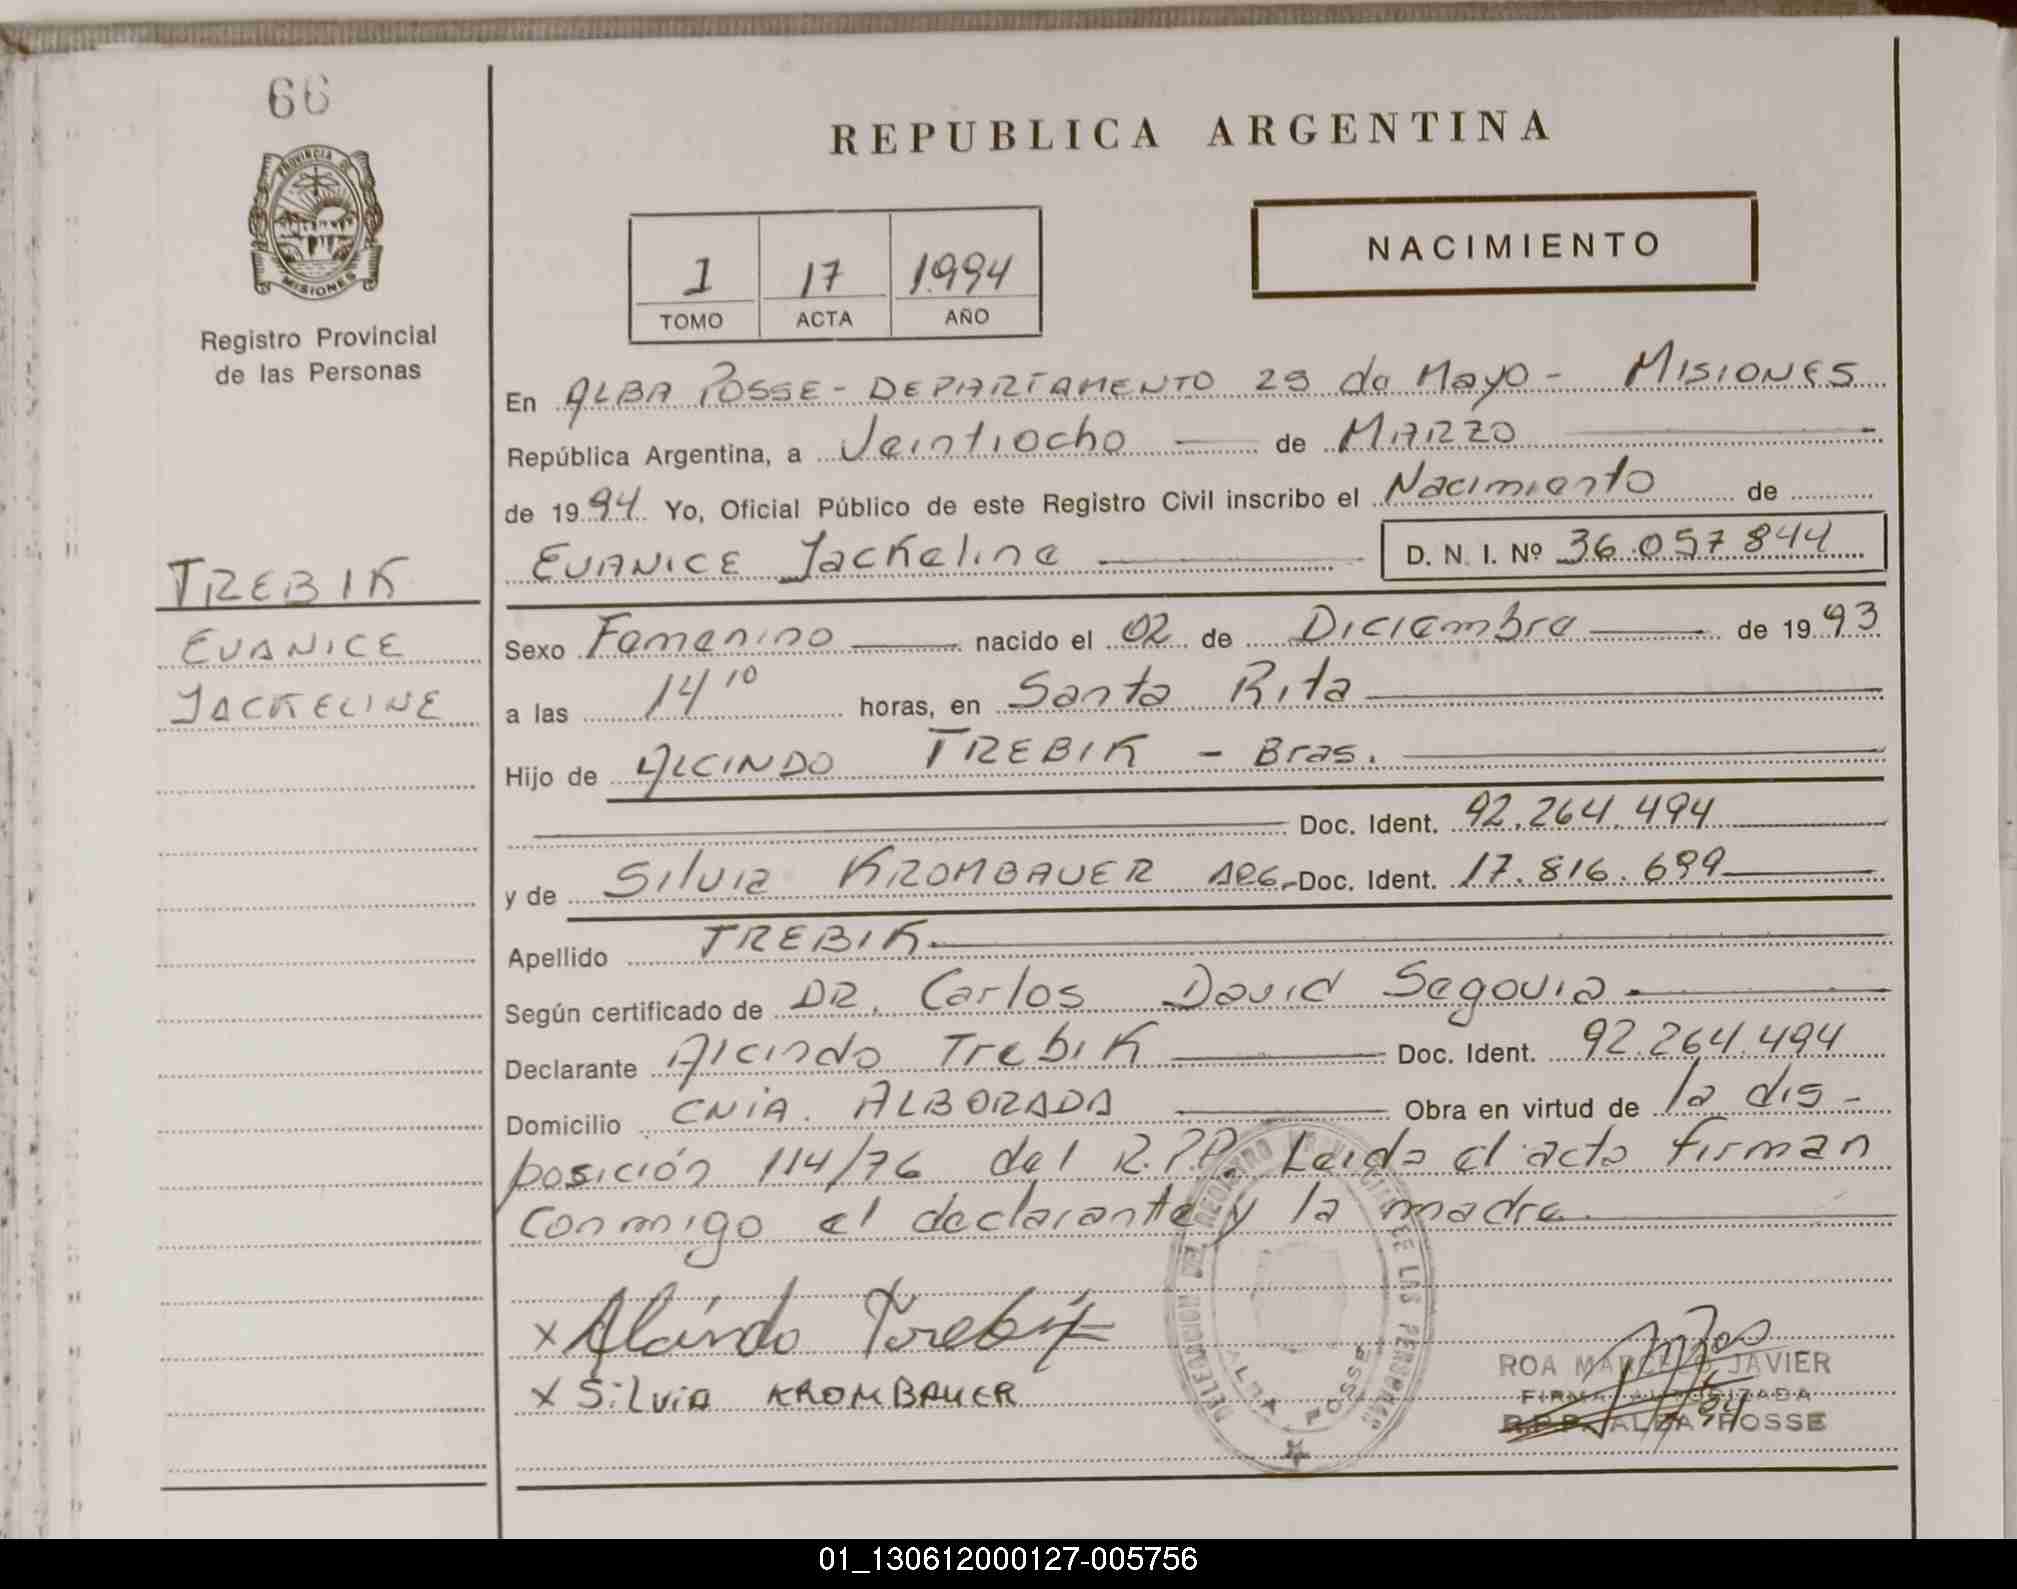 66
PROVINCIA DE
MISIONES
Registro Provincial
de las Personas
TREBIK
EVANICE
JACKELINE
REPUBLICA ARGENTINA
NACIMIENTO
1 17 1994
TOMO ACTA AÑO
En ALBA POSSE - DEPARTAMENTO 25 de Mayo - MISIONES
República Argentina, a Veintiocho de MARZO
de 1994 Yo, Oficial Público de este Registro Civil inscribo el Nacimiento de
EVANICE Jackeline D. N. I. Nº 36.057844
Sexo Femenino nacido el 02 de Diciembre de 1993
a las 14 10 horas, en Santa Rita
Hijo de ALCINDO TREBIK - Bras.
Doc. Ident. 92.264.494
y de Silvia KROMBAUER ARG.- Doc. Ident. 17.816.699
Apellido TREBIK
Según certificado de DR. Carlos David Segovia
Declarante Alcindo Trebik Doc. Ident. 92.264.494
Domicilio CNIA. ALBORADA Obra en virtud de la dis-
posición 114/76 del R.P.P. Leida el acta firman
conmigo el declarante y la madre
x Alcindo Trebik
x Silvia KROMBAUER
DELEGACION DEL REGISTRO PROVINCIAL DE LAS PERSONAS
ALBA POSSE
ROA MARCELO JAVIER
FIRMA AUTORIZADA
R.P.P. ALBA POSSE
01_130612000127-005756